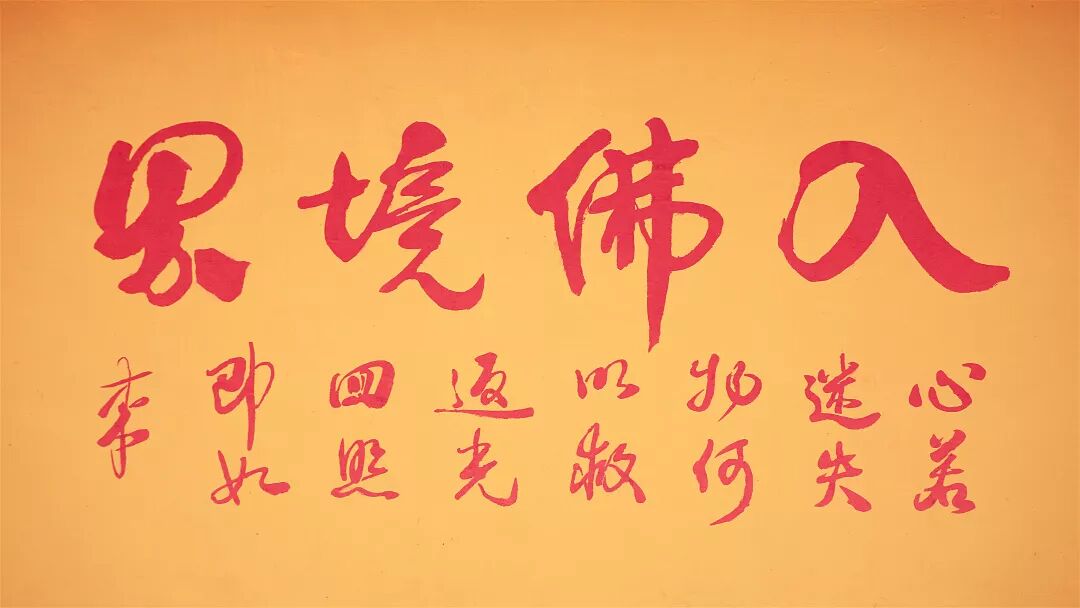 入佛境界
心若
迷失
物何
以救
返光
回照
即如
来